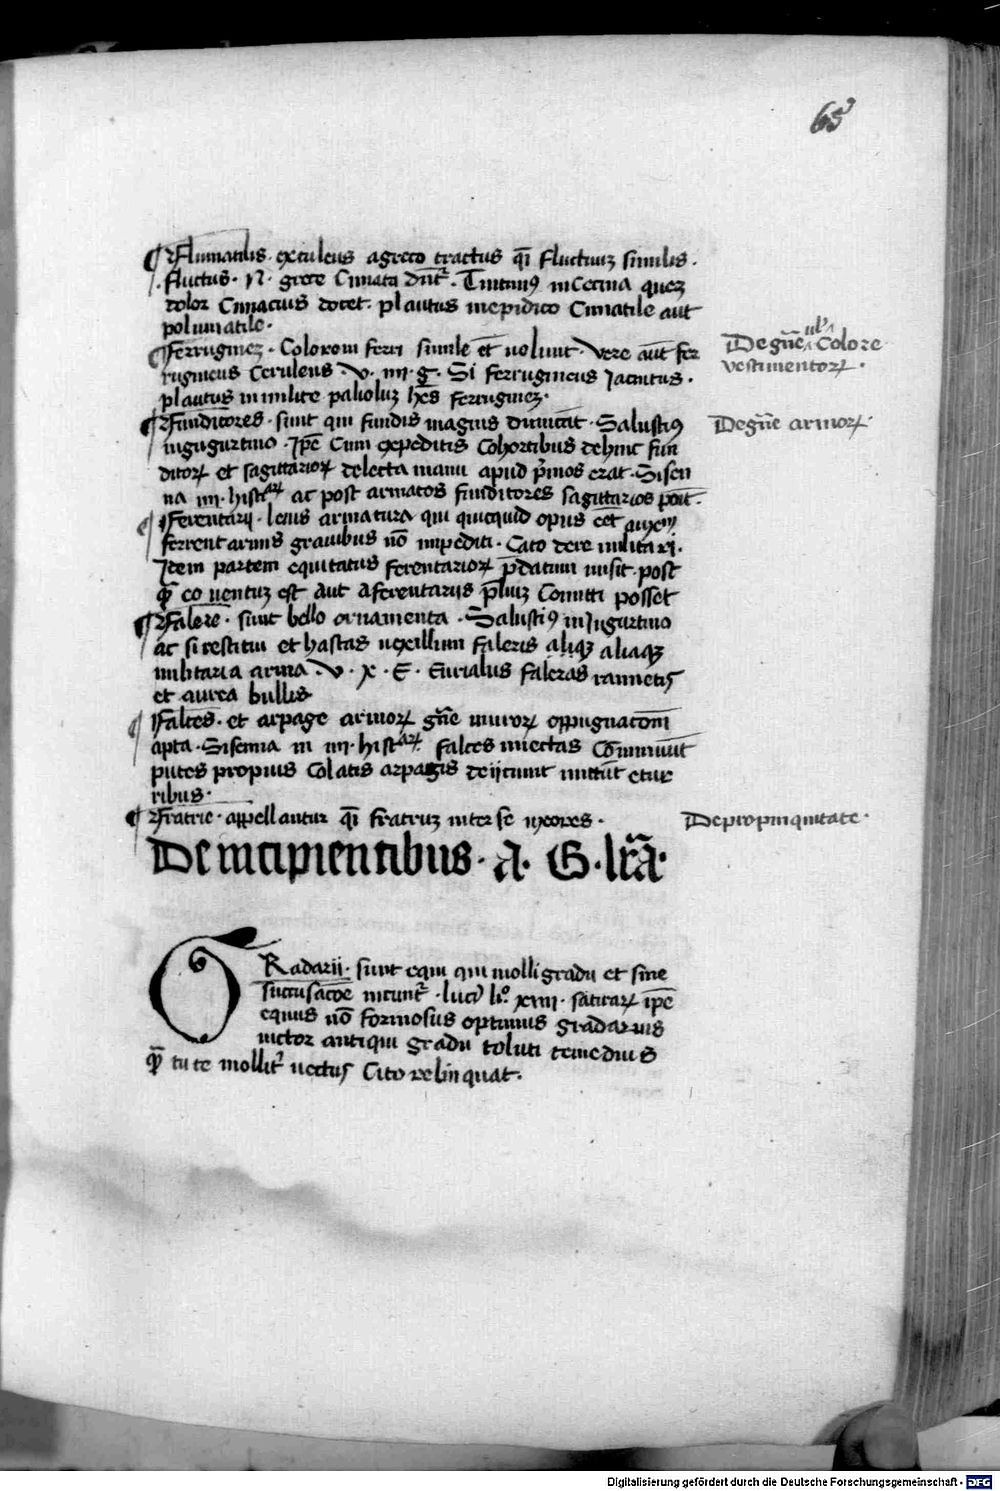 65
Flumatilis · exculeus agreco tractus qī fluctuuz similis ·
fluctus · N · grece Cimata dn̄t · Titiniꝰ in Cetina quez
dolor Cimacius docet · plautus inepidico Cimatile aut
polumatile ·
Ferruginez · Colorem ferri simile eē uolunt · Vere aūt fer
rugineus Ceruleus · V · iiii · g · Si ferrugineus Jacintus ·
plautus in milite palioluz hēs ferruginez ·
Degn̄e ulʼ Colore
vestimentoꝝ ·
Funditores · sunt qui fundis magnis dimicāt · Salustiꝰ
iniugurtino · Ip̄e Cum expeditis Cohortibus dehinc fun
ditoꝝ et sagittarioꝝ delecta manu apud p̄mos erat · Sisen
na iiii · histaꝝ ac post armatos funditores sagittarios
Degn̄e armoꝝ ·
Ferentarii · leuis armatura qui quicquid opus eēt
ferrent armis grauibus nō impediti · Cato dere militari ·
Idem partem equitatus ferentarioꝝ p̄datum misit · post
qꝫ eo uentuz est aut aferentariis p̄liuz Comitti posset
Falere · sunt bello ornamenta · Salustiꝰ in Jugurtino
ac si restitui et hastas uexillum faleris aliqꝫ aliaqꝫ
militaria arma · V · X · E · Eurialus faleras ramnetis
et aurea bullis
Falces · et arpage armoꝝ gn̄e muroꝝ oppugnacōni
apta · Sisenna in iiii · histaꝝ · falces iniectas Comminiūt
putes propius Colatis arpagis deijciunt mittūt etur
ribus ·
Fratrie · appellantur qī fratruz inter se uxores ·
De propinquitate ·
De incipientibus · A · G · lr̄ā ·
GRadarii · sunt equi qui molli gradu et sine
succusacōe nitunt᷑ · lucił lio · xiiii · satiraꝝ ip̄e
equus nō formosus optimus gradarius
uictor antiqui gradu toluti temedius
qꝫ tu te mollit᷑ uectus Cito relinquat ·
Digitalisierung gefördert durch die Deutsche Forschungsgemeinschaft - DFG